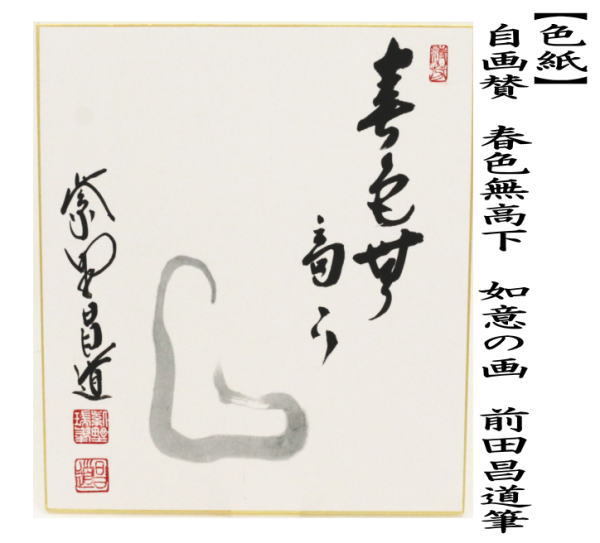 【色紙】
自画賛　春色無高下　如意の画　前田昌道筆
春色無
高下
紫野昌道